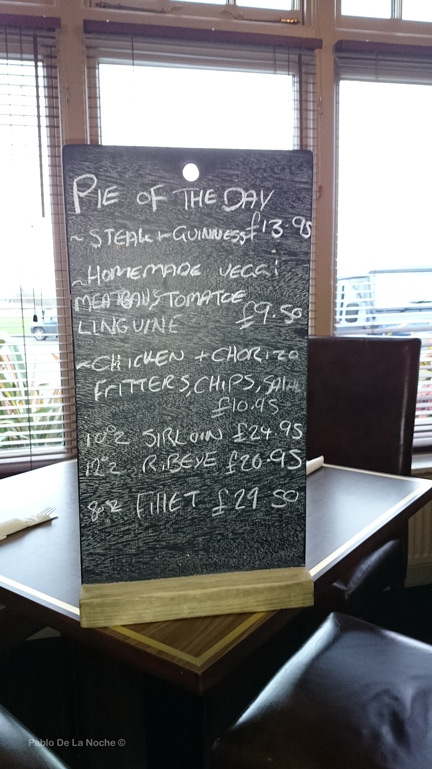 PIE OF THE DAY
~ STEAK + GUINNESS £13.95
~ HOMEMADE VEGGI
MEATBALLS TOMATOE
LINGUINE £9.50
~ CHICKEN + CHORIZO
FRITTERS, CHIPS, SALAD
£10.95
10oz SIRLOIN £24.95
12oz RIBEYE £26.95
8oz FILLET £29.50
Pablo De La Noche ©